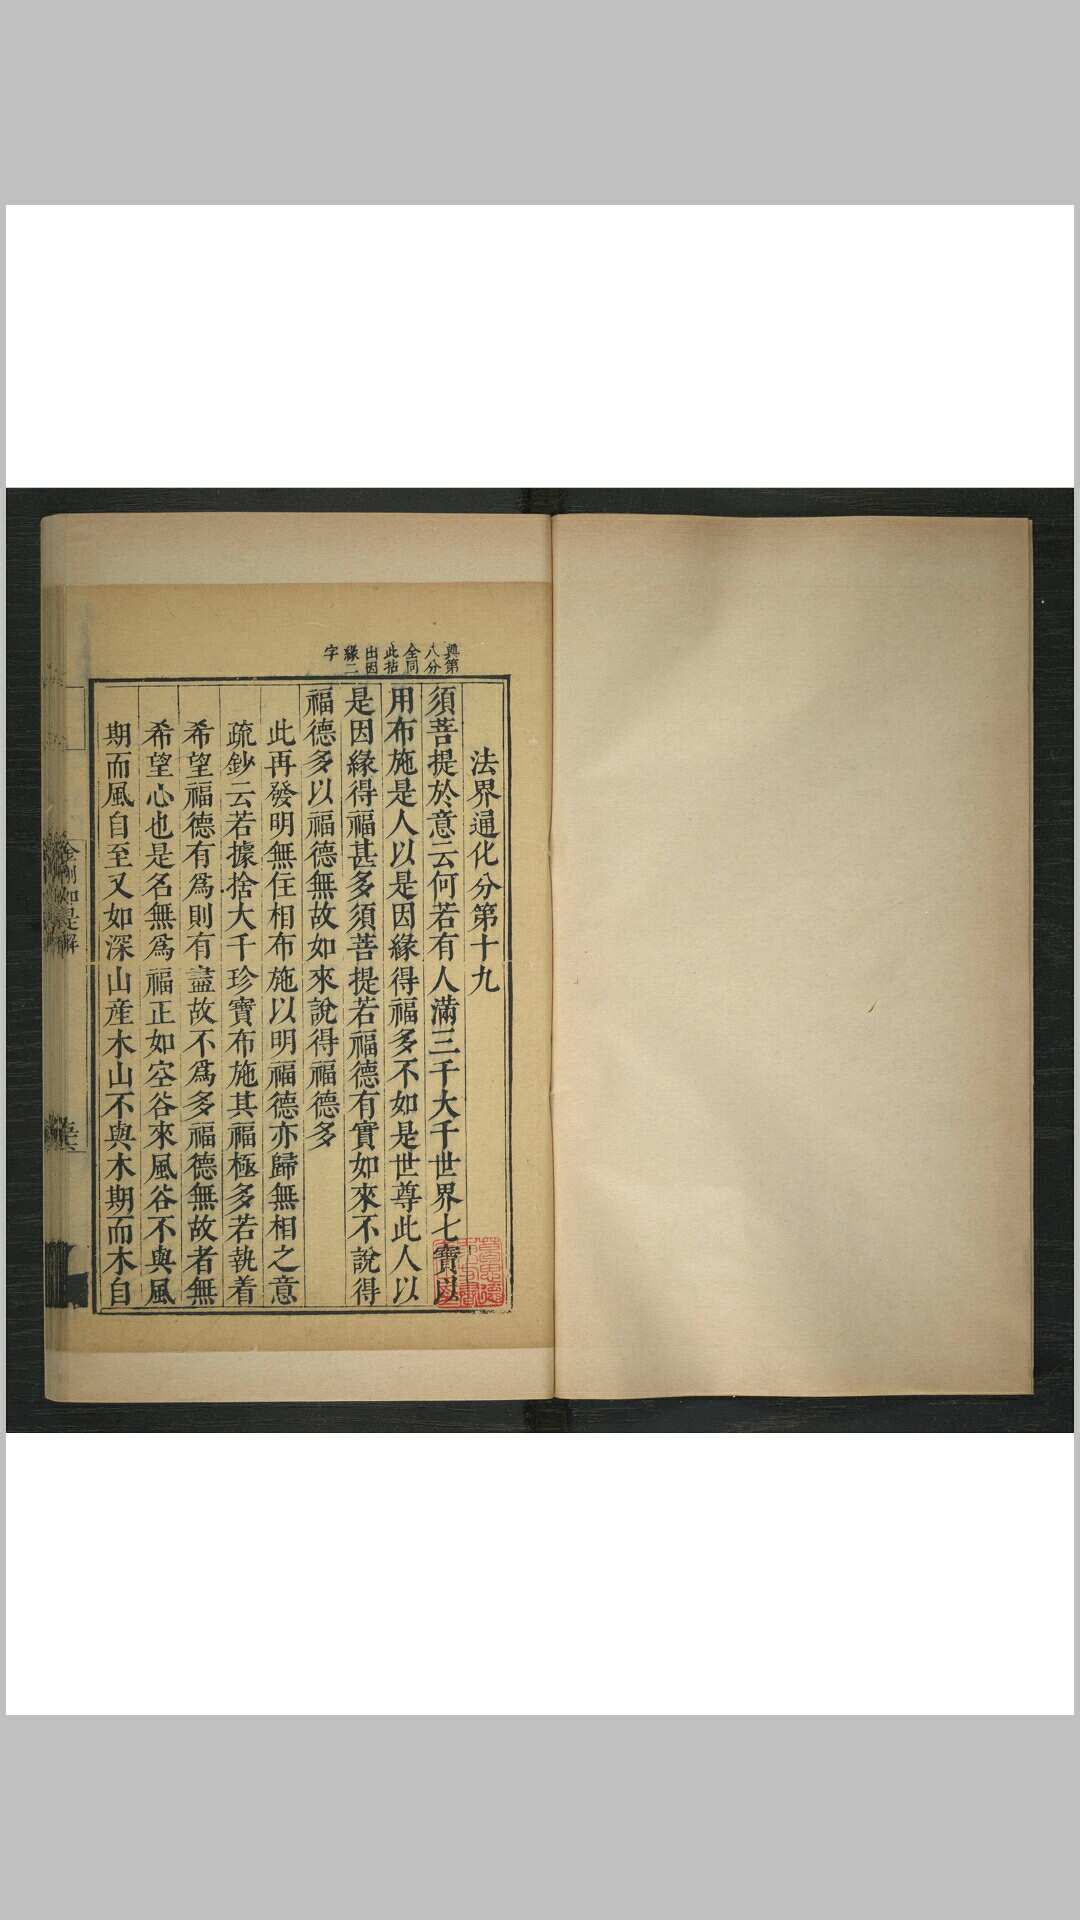 與第
八分
全同
此拈
出因
緣二
字
法界通化分第十九
須菩提於意云何若有人滿三千大千世界七寶以
用布施是人以是因緣得福多不如是世尊此人以
是因緣得福甚多須菩提若福德有實如來不說得
福德多以福德無故如來說得福德多
此再發明無住相布施以明福德亦歸無相之意
疏鈔云若據捨大千珍寶布施其福極多若執着
希望福德有爲則有盡故不爲多福德無故者無
希望心也是名無爲福正如空谷來風谷不與風
期而風自至又如深山産木山不與木期而木自
金剛如是解